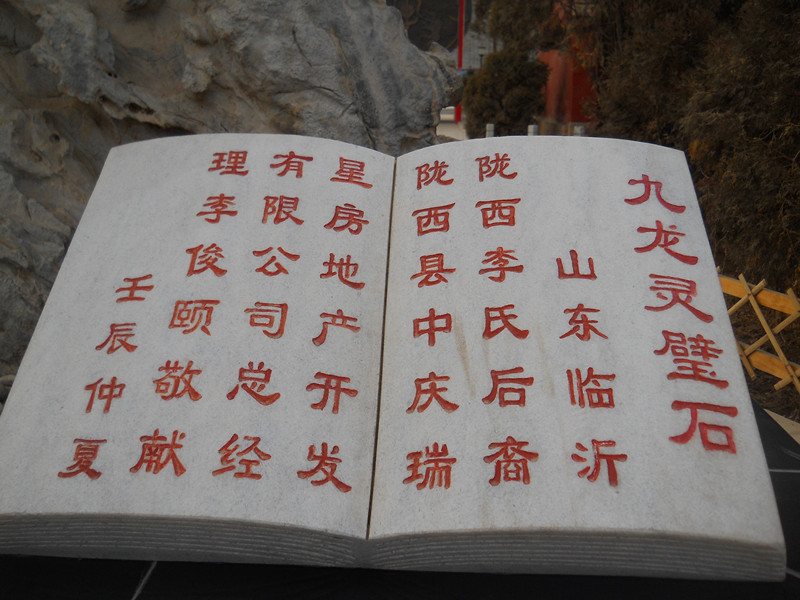 九龙灵璧石
山东临沂
陇西李氏后裔
陇西县中庆瑞
星房地产开发
有限公司总经
理李俊颐敬献
壬辰仲夏